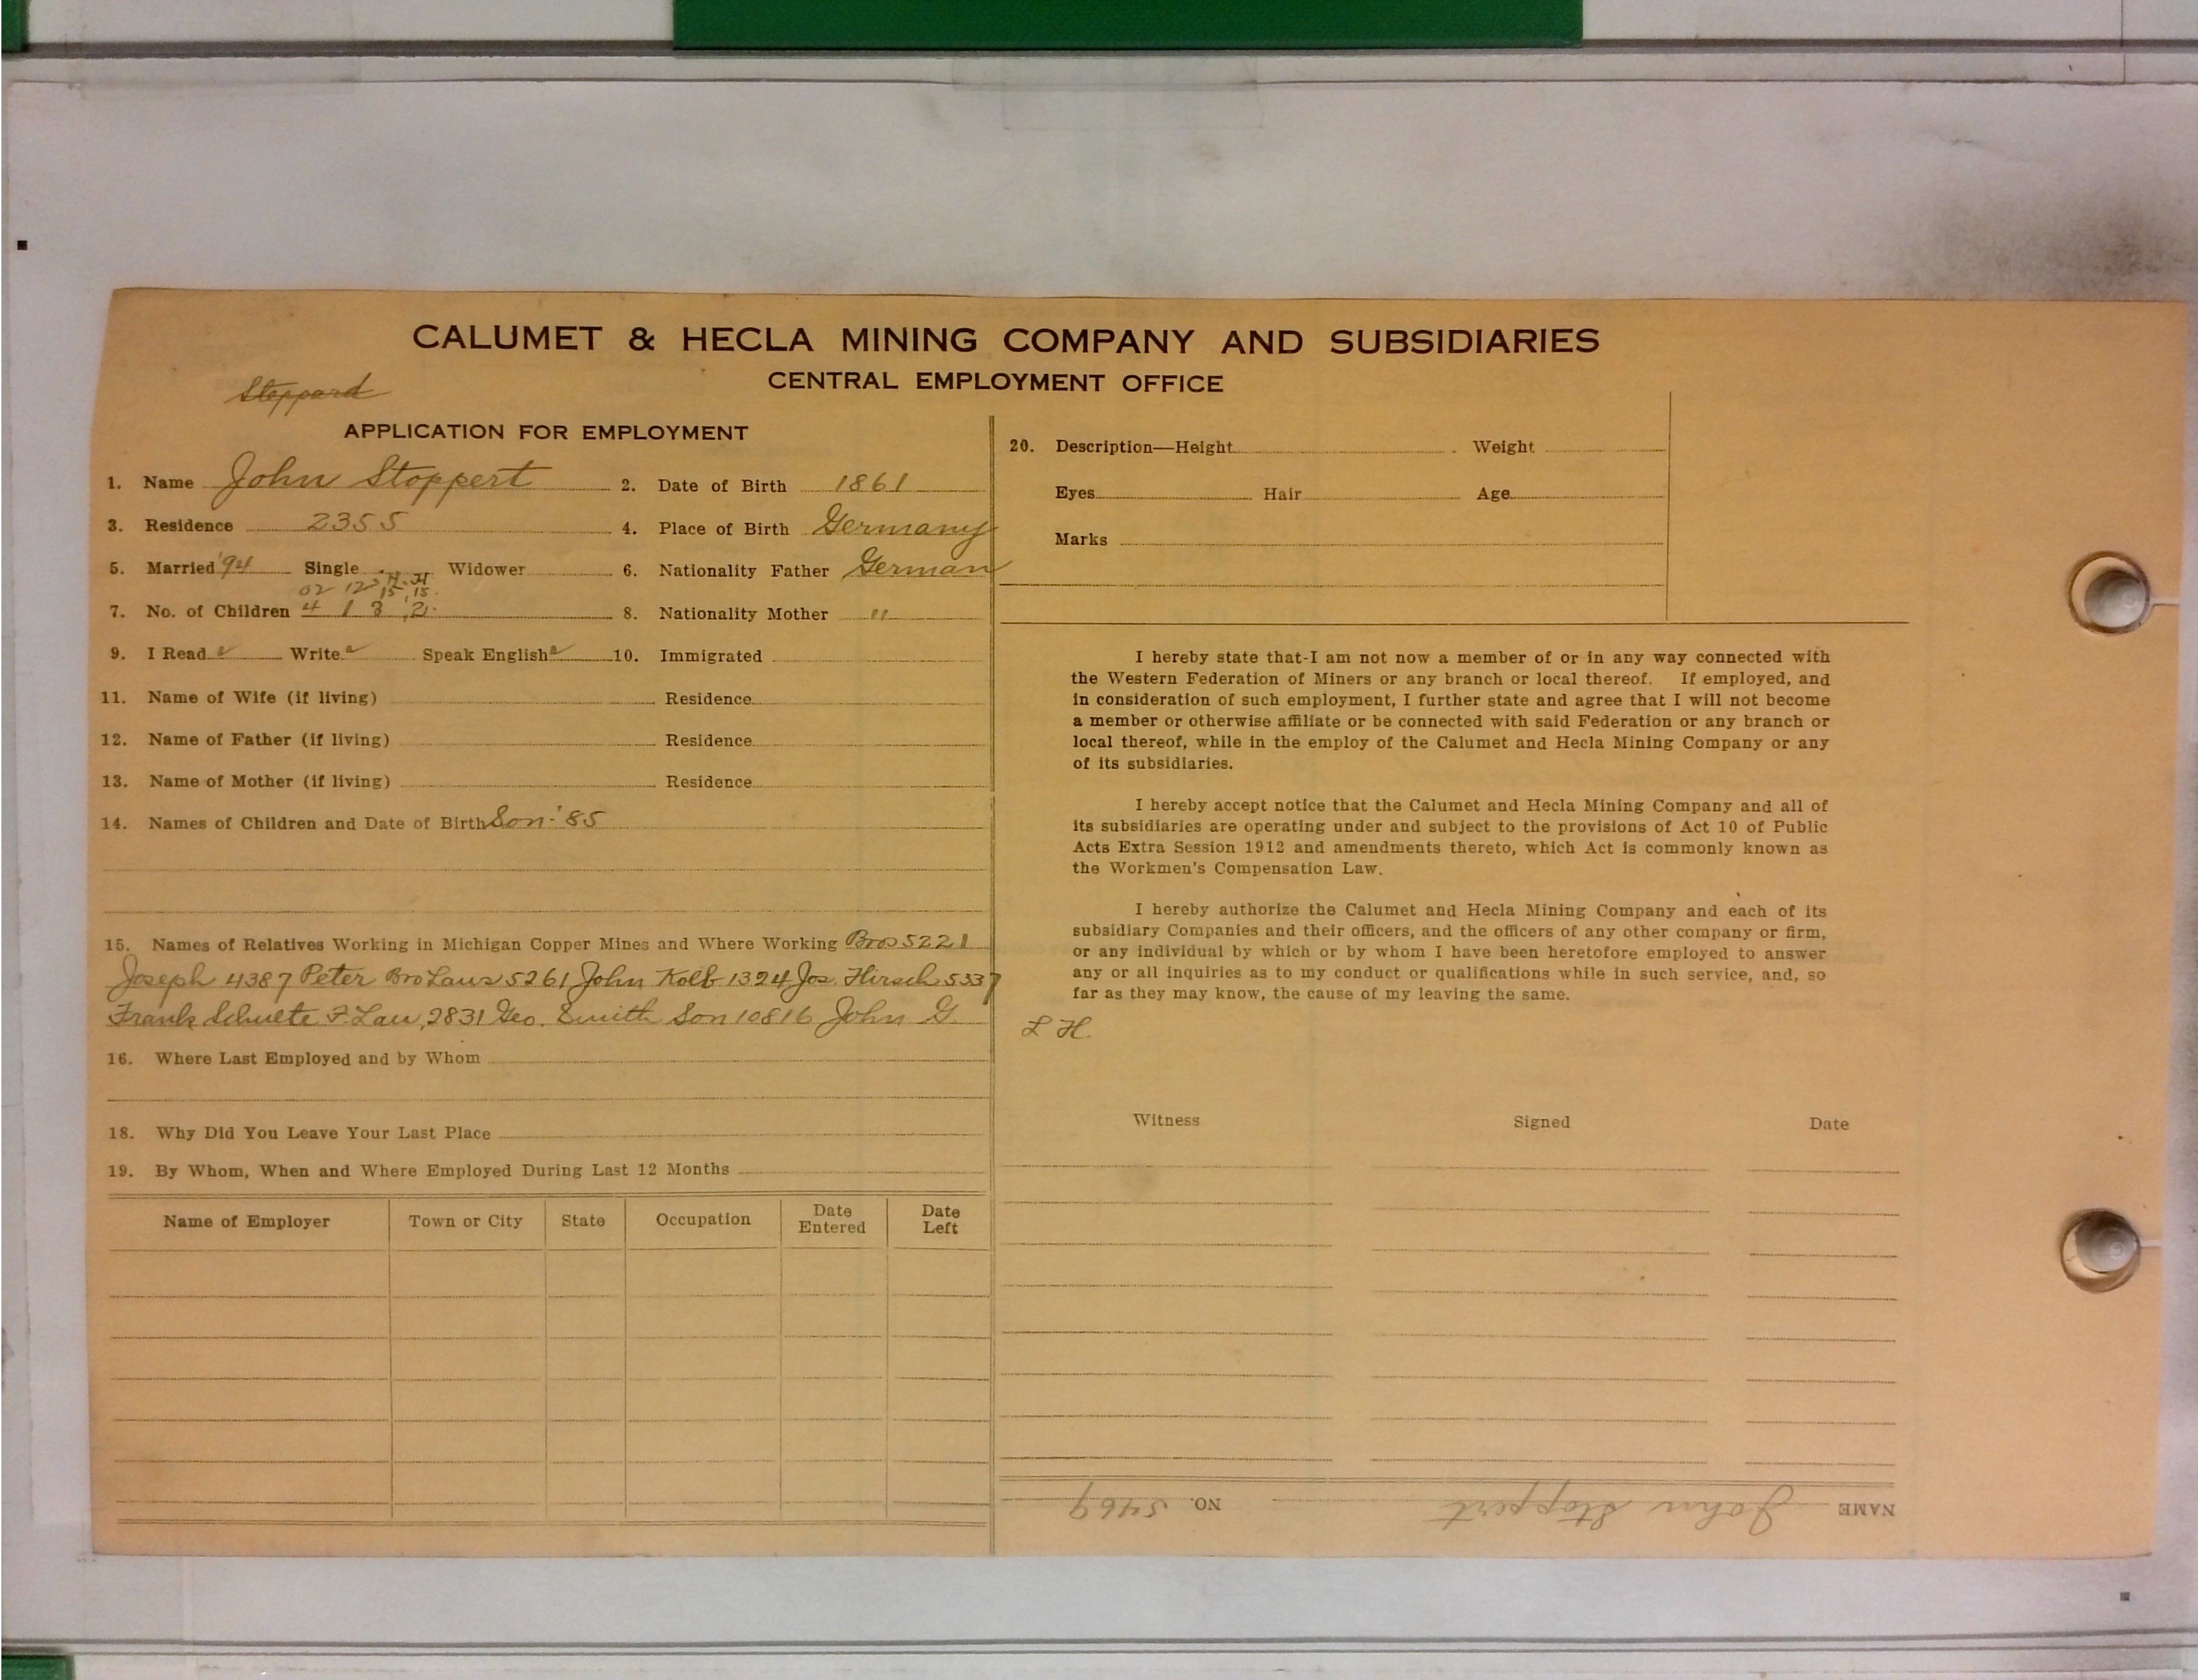 CALUMET & HECLA MINING COMPANY AND SUBSIDIARIES
CENTRAL EMPLOYMENT OFFICE
Steppard
APPLICATION FOR EMPLOYMENT
1. Name John Stoppert 2. Date of Birth 1861
3. Residence 2355 4. Place of Birth Germany
5. Married '94 Single Widower 6. Nationality Father German
02 12
15 15
7. No. of Children 4 1 3 2 8. Nationality Mother "
9. I Read Write Speak English 10. Immigrated
11. Name of Wife (if living) Residence
12. Name of Father (if living) Residence
13. Name of Mother (if living) Residence
14. Names of Children and Date of Birth Son-'85
15. Names of Relatives Working in Michigan Copper Mines and Where Working Bros 5221
Joseph 4387 Peter Bro Laws 5261 John Kolb 1324 Jos. Hirsch 5337
Frank Schulte F. Law, 2831 Geo. Smith Son 10816 John G.
16. Where Last Employed and by Whom
18. Why Did You Leave Your Last Place
19. By Whom, When and Where Employed During Last 12 Months
Name of Employer Town or City State Occupation Date Entered Date Left
20. Description—Height Weight
Eyes Hair Age
Marks
I hereby state that I am not now a member of or in any way connected with
the Western Federation of Miners or any branch or local thereof. If employed, and
in consideration of such employment, I further state and agree that I will not become
a member or otherwise affiliate or be connected with said Federation or any branch or
local thereof, while in the employ of the Calumet and Hecla Mining Company or any
of its subsidiaries.
I hereby accept notice that the Calumet and Hecla Mining Company and all of
its subsidiaries are operating under and subject to the provisions of Act 10 of Public
Acts Extra Session 1912 and amendments thereto, which Act is commonly known as
the Workmen's Compensation Law.
I hereby authorize the Calumet and Hecla Mining Company and each of its
subsidiary Companies and their officers, and the officers of any other company or firm,
or any individual by which or by whom I have been heretofore employed to answer
any or all inquiries as to my conduct or qualifications while in such service, and, so
far as they may know, the cause of my leaving the same.
L H.
Witness Signed Date
NAME John Stoppert NO. 5469